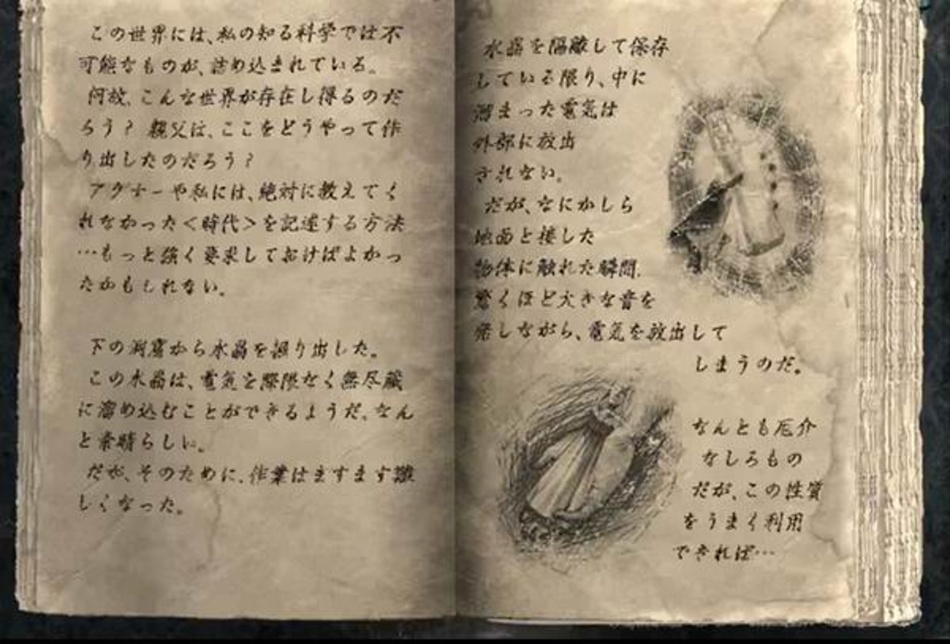 この世界には、私の知る科学では不
可能なものが、詰め込まれている。
何故、こんな世界が存在し得るのだ
ろう？ 親父は、ここをどうやって作
り出したのだろう？
アグナーや私には、絶対に教えてく
れなかった＜時代＞を記述する方法
…もっと強く要求しておけばよかっ
たかもしれない。
下の洞窟から水晶を掘り出した。
この水晶は、電気を際限なく無尽蔵
に溜め込むことができるようだ。なん
と素晴らしい。
だが、そのために、作業はますます難
しくなった。
水晶を隔離して保存
している限り、中に
溜まった電気は
外部に放出
されない。
だが、なにかしら
地面と接した
物体に触れた瞬間、
驚くほど大きな音を
発しながら、電気を放出して
しまうのだ。
なんとも厄介
なしろもの
だが、この性質
をうまく利用
できれば…